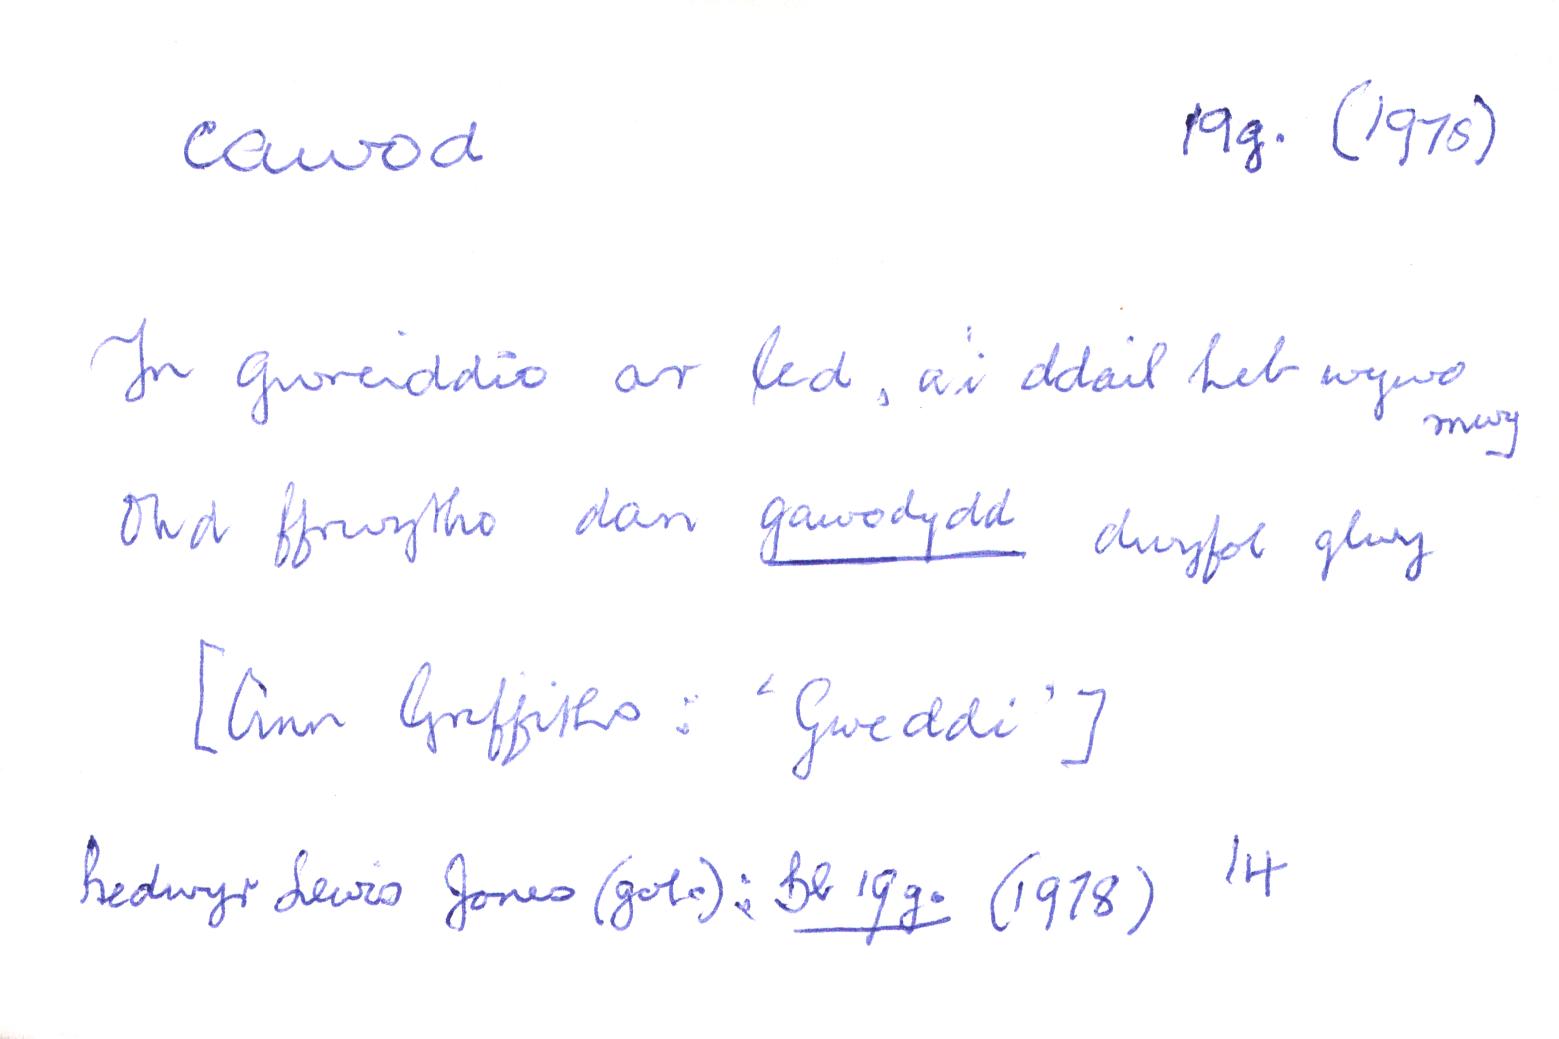 cawod 19g. (1978)
Yn gwreiddio ar led, a'i ddail heb wywo mwy
Ond ffrwytho dan gawodydd dwyfol glwy
[Ann Griffiths : 'Gweddi']
Bedwyr Lewis Jones (gol.): Bl 19g. (1978) 14